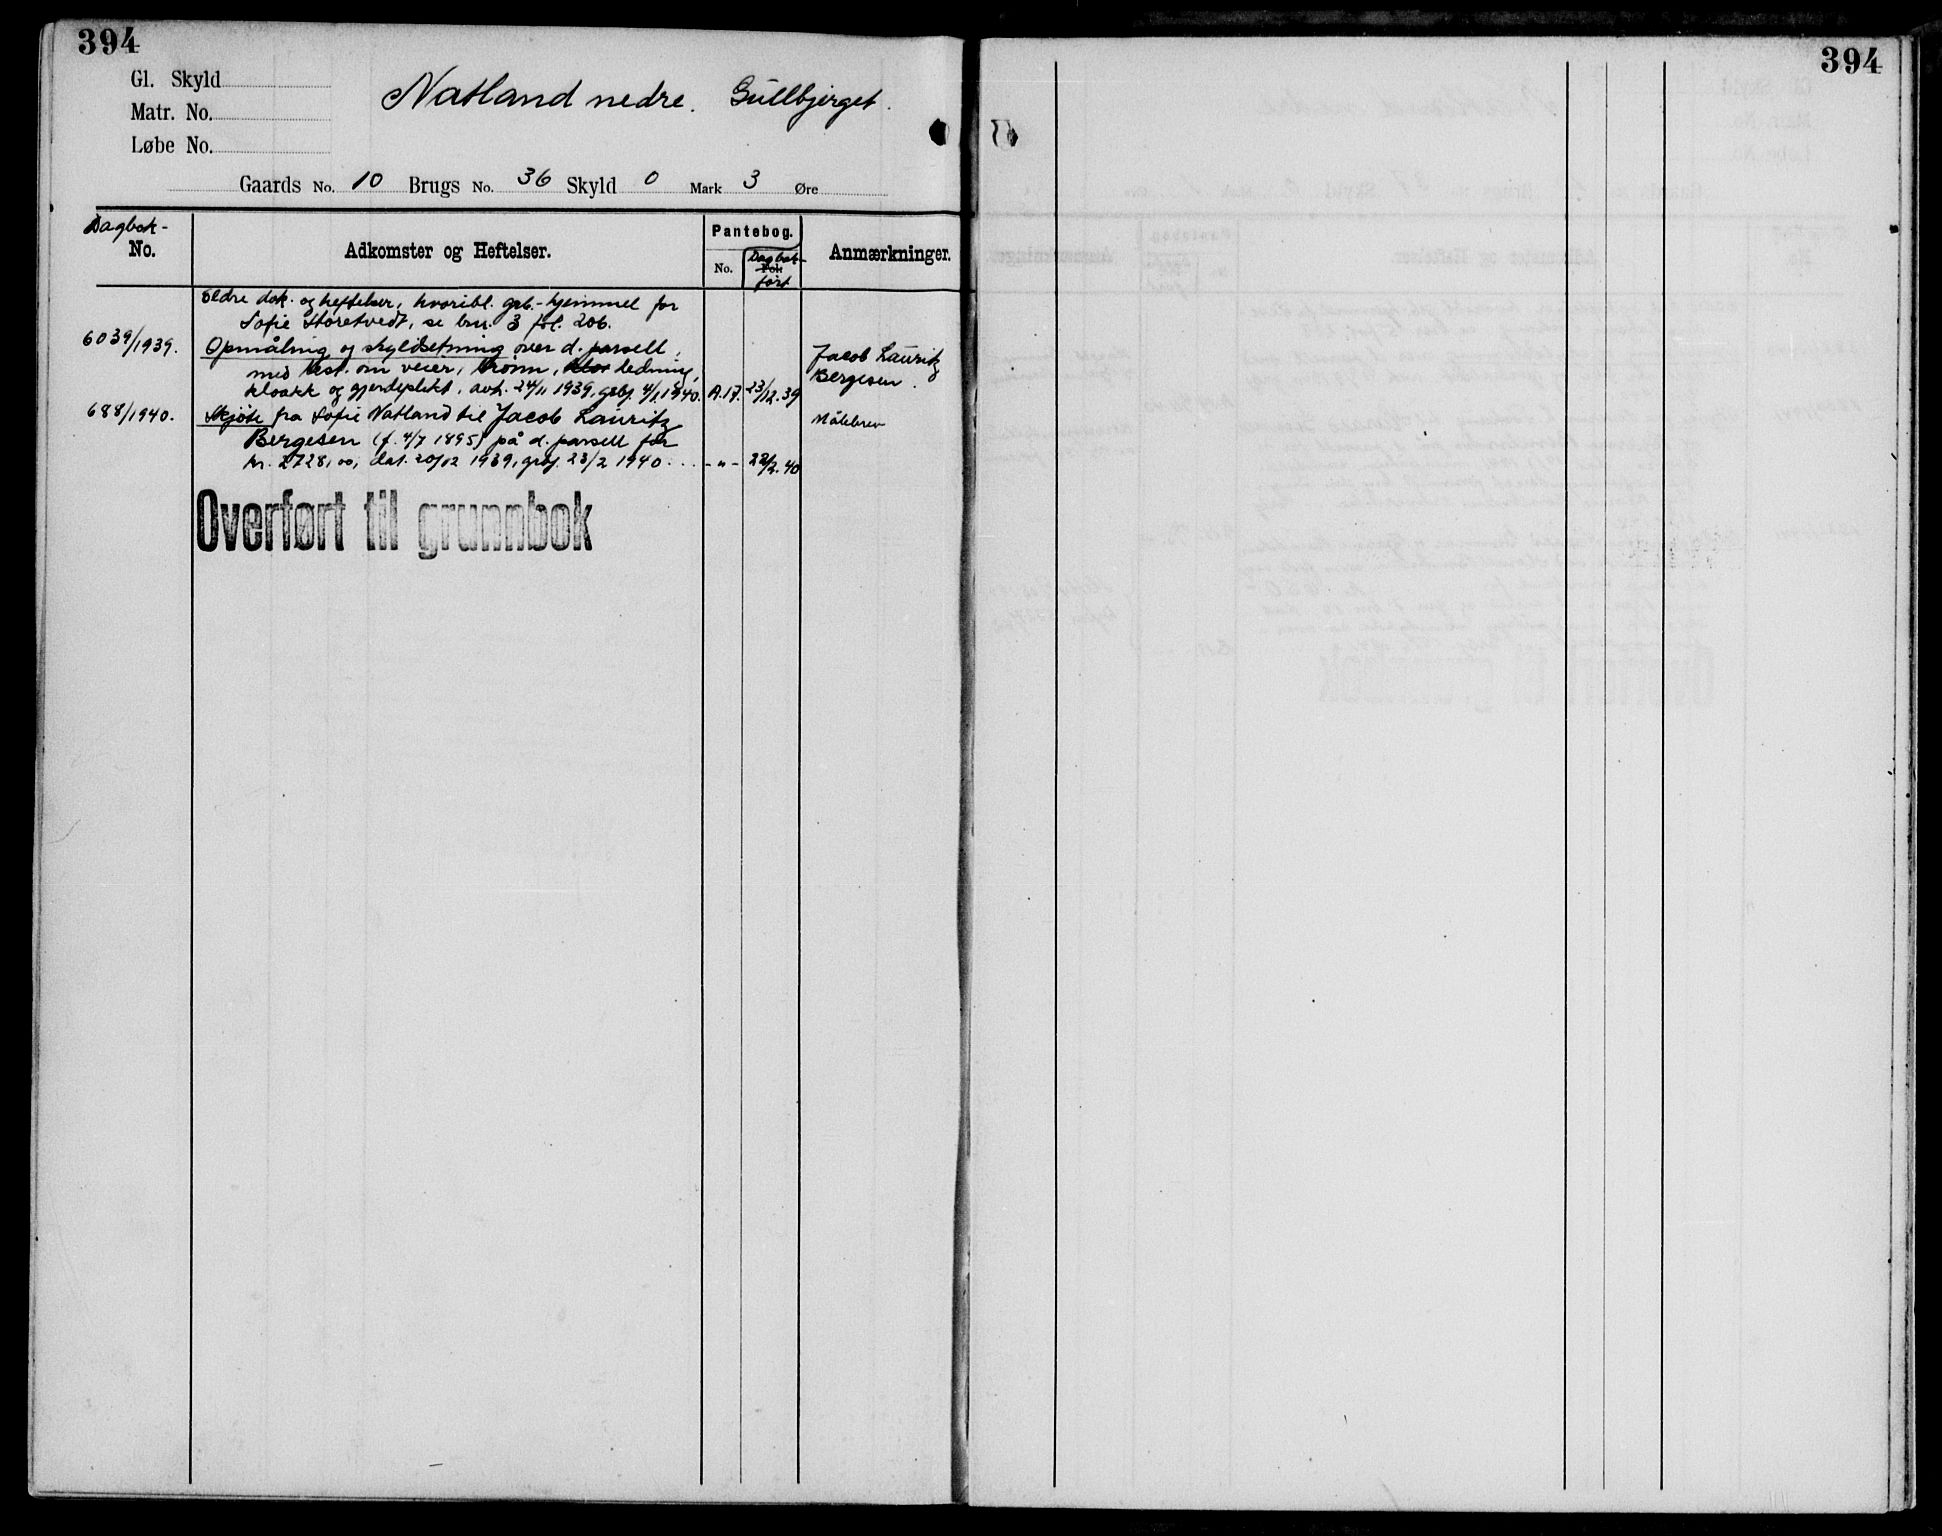 394
Gl. Skyld
Matr. No.
Løbe No.
Natland nedre. Gullbjerget.
Gaards No. 10 Brugs No. 36 Skyld 0 Mark 3 Øre
Dagbok-
No.
Adkomster og Heftelser.
Pantebog.
No.
Dagbok-
Fol.
ført
Anmærkninger.
Eldre dok. og heftelser, hvoribl. grb.-hjemmel for
Sofie Storetvedt, se bnr. 3 fol. 206.
6039/1939. Opmåling og skyldsetning over d. parsell,
med best. om veier, brønn, ledning,
kloakk og gjerdeplikt, avh. 24/11 1939, grbf. 4/1 1940. A.17. 23/12.39
Jacob Lauritz
Bergesen.
688/1940. Skjøte fra Sofie Natland til Jacob Lauritz
Bergesen (f. 4/7 1895) på d. parsell for
kr. 2728,00, dat. 20/12 1939, grbf. 23/2 1940. . . - " - 22/2.40
Målebrev
Overført til grunnbok
394